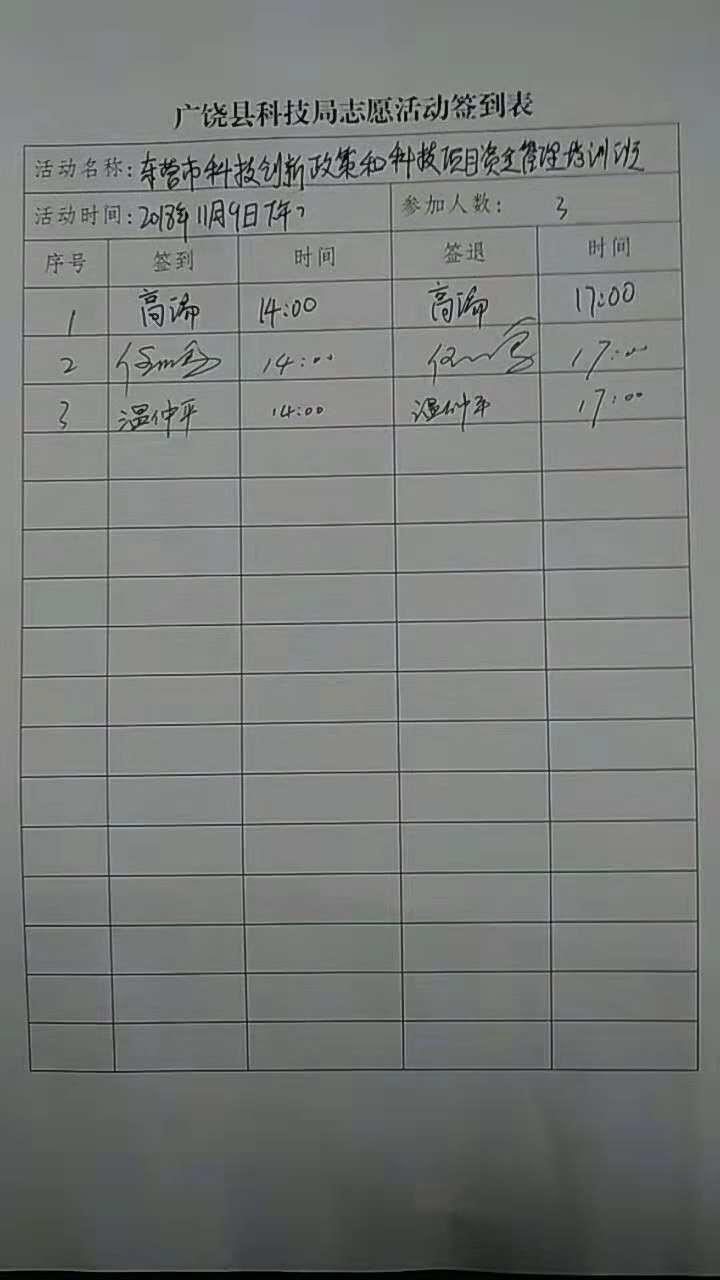 广饶县科技局志愿活动签到表
活动名称：东营市科技创新政策和科技项目资金管理培训班
活动时间：2018年11月9日下午 参加人数： 3
序号 签到 时间 签退 时间
1 高瑞 14:00 高瑞 17:00
2 14:00 17:00
3 温仲平 14:00 温仲平 17:00